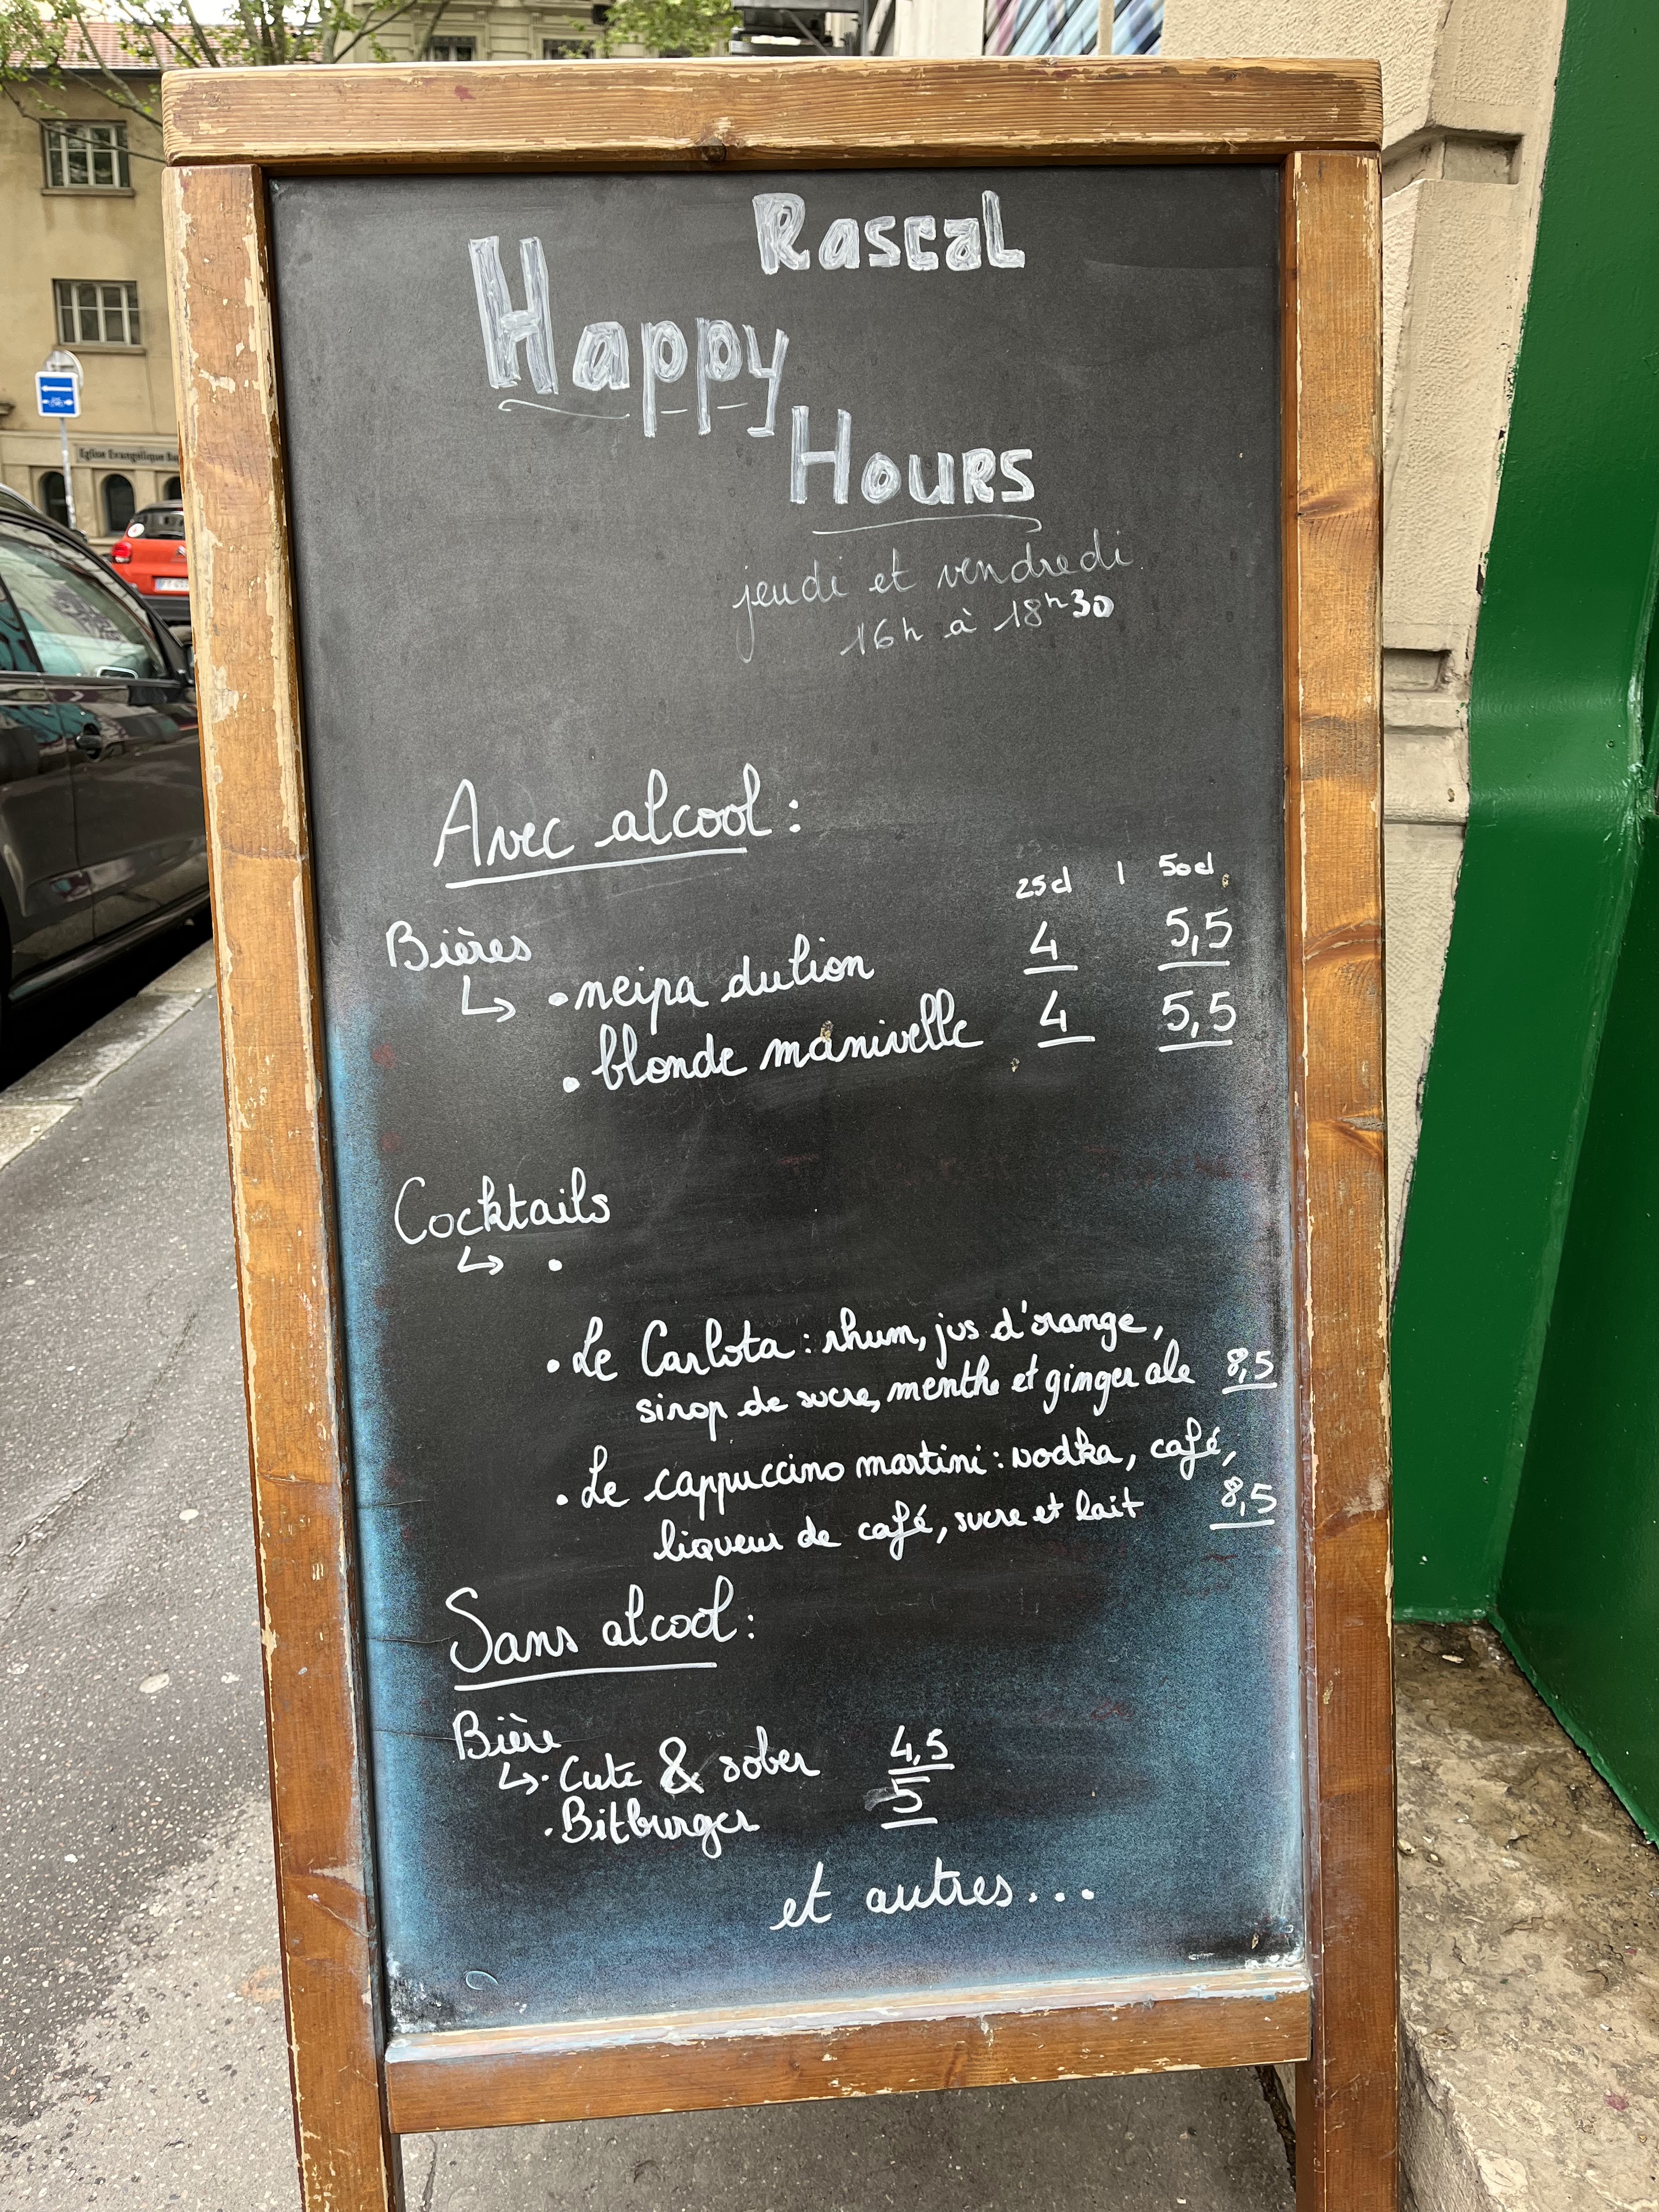 Rascal
Happy
Hours
jeudi et vendredi
16h à 18h30
Avec alcool :
25cl | 50cl
Bières
↳ • neipa dulion 4 5,5
• blonde manivelle 4 5,5
Cocktails
↳ •
• Le Carlota : rhum, jus d'orange,
sirop de sucre, menthe et ginger ale 8,5
• Le cappuccino martini : vodka, café,
liqueur de café, sucre et lait 8,5
Sans alcool :
Bière
↳ • Cute & sober 4,5
• Bitburger 5
et autres...
Eglise Evangélique